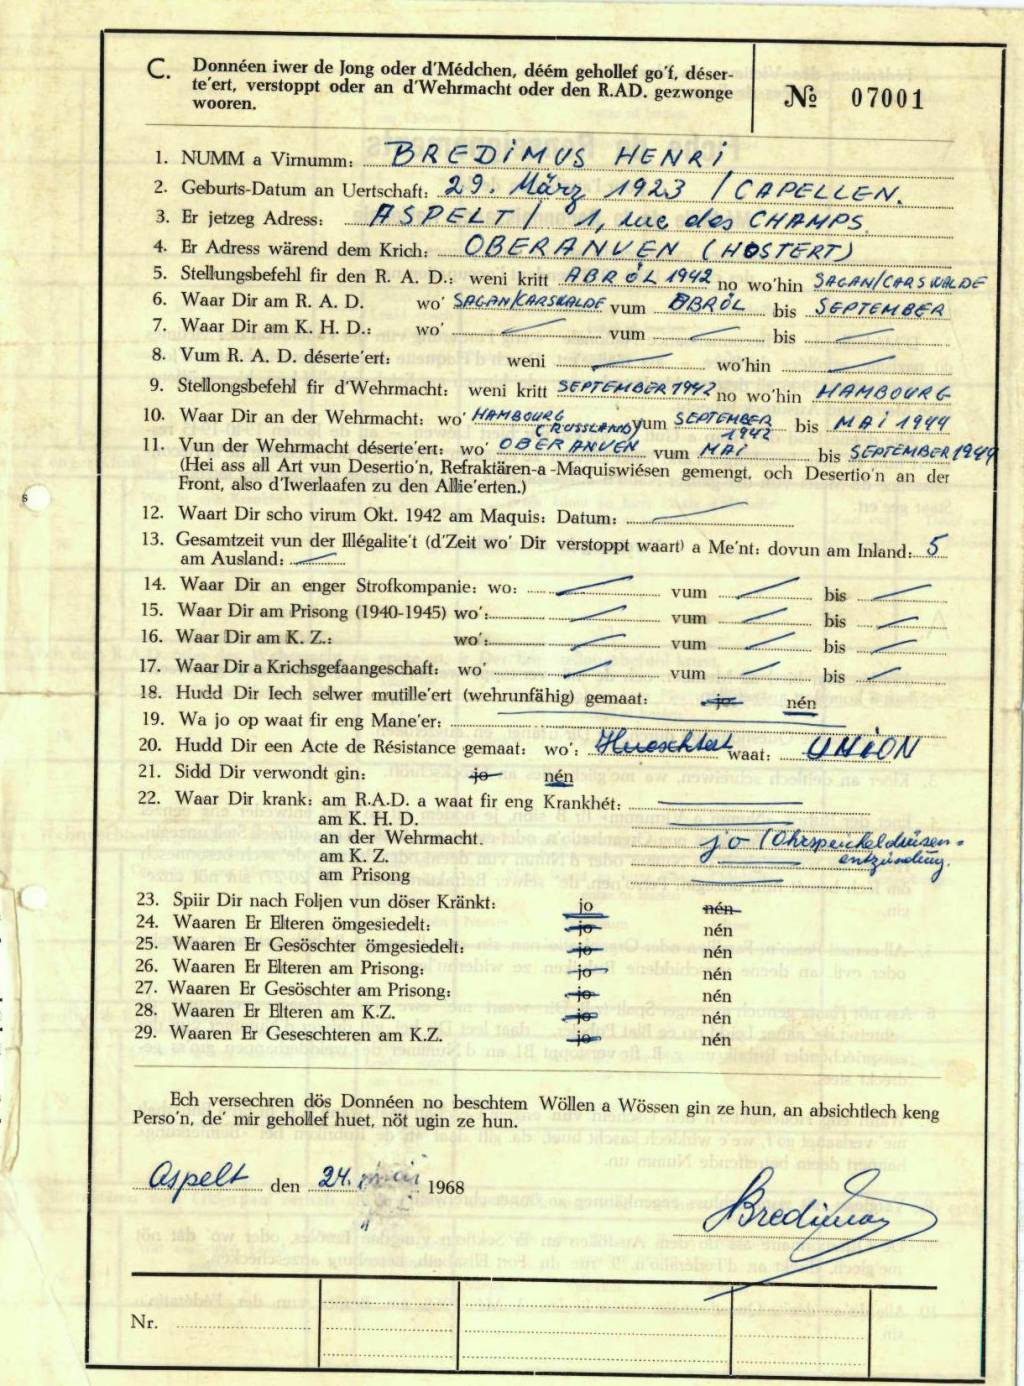 C. Donnéen iwer de Jong oder d'Médchen, déém gehollef go'f, déser-
te'ert, verstoppt oder an d'Wehrmacht oder den R.AD. gezwonge
wooren.
№ 07001
1. NUMM a Virnumm: BREDIMUS HENRI
2. Geburts-Datum an Uertschaft: 29. März 1923 / CAPELLEN.
3. Er jetzeg Adress: ASPELT / 1, rue des CHAMPS
4. Er Adress wärend dem Krich: OBERANVEN (HOSTERT)
5. Stellungsbefehl fir den R. A. D.: weni kritt ABRÖL 1942 no wo'hin SAGAN/CARSWALDE
6. Waar Dir am R. A. D. wo' SAGAN/CARSWALDE vum ABRÖL bis SEPTEMBER
7. Waar Dir am K. H. D.: wo' — vum — bis —
8. Vum R. A. D. déserte'ert: weni — wo'hin —
9. Stellongsbefehl fir d'Wehrmacht: weni kritt SEPTEMBER 1942 no wo'hin HAMBOURG
10. Waar Dir an der Wehrmacht: wo' HAMBOURG (RUSSLAND) vum SEPTEMBER 1942 bis MAI 1944
11. Vun der Wehrmacht déserte'ert: wo' OBERANVEN vum MAI bis SEPTEMBER 1944
(Hei ass all Art vun Desertio'n, Refraktären-a-Maquiswiésen gemengt, och Desertio'n an der
Front, also d'Iwerlaafen zu den Allie'erten.)
12. Waart Dir scho virum Okt. 1942 am Maquis: Datum: —
13. Gesamtzeit vun der Illégalite't (d'Zeit wo' Dir verstoppt waart) a Me'nt: dovun am Inland: 5
am Ausland: —
14. Waar Dir an enger Strofkompanie: wo: — vum — bis —
15. Waar Dir am Prisong (1940-1945) wo': — vum — bis —
16. Waar Dir am K. Z.: wo': — vum — bis —
17. Waar Dir a Krichsgefaangeschaft: wo' — vum — bis —
18. Hudd Dir Iech selwer mutille'ert (wehrunfähig) gemaat: jo nén
19. Wa jo op waat fir eng Mane'er: —
20. Hudd Dir een Acte de Résistance gemaat: wo': waat: UNION
21. Sidd Dir verwondt gin: jo nén
22. Waar Dir krank: am R.A.D. a waat fir eng Krankhét: —
am K. H. D. —
an der Wehrmacht. jo (Ohrspeicheldrüsen-
am K. Z. — entzündung.
am Prisong —
23. Spiir Dir nach Foljen vun döser Kränkt: jo nén
24. Waaren Er Elteren ömgesiedelt: jo nén
25. Waaren Er Gesöschter ömgesiedelt: jo nén
26. Waaren Er Elteren am Prisong: jo nén
27. Waaren Er Gesöschter am Prisong: jo nén
28. Waaren Er Elteren am K.Z. jo nén
29. Waaren Er Geseschteren am K.Z. jo nén
Ech versechren dös Donnéen no beschtem Wöllen a Wössen gin ze hun, an absichtlech keng
Perso'n, de' mir gehollef huet, nöt ugin ze hun.
Aspelt den 24. mai 1968
Bredimus
Nr.